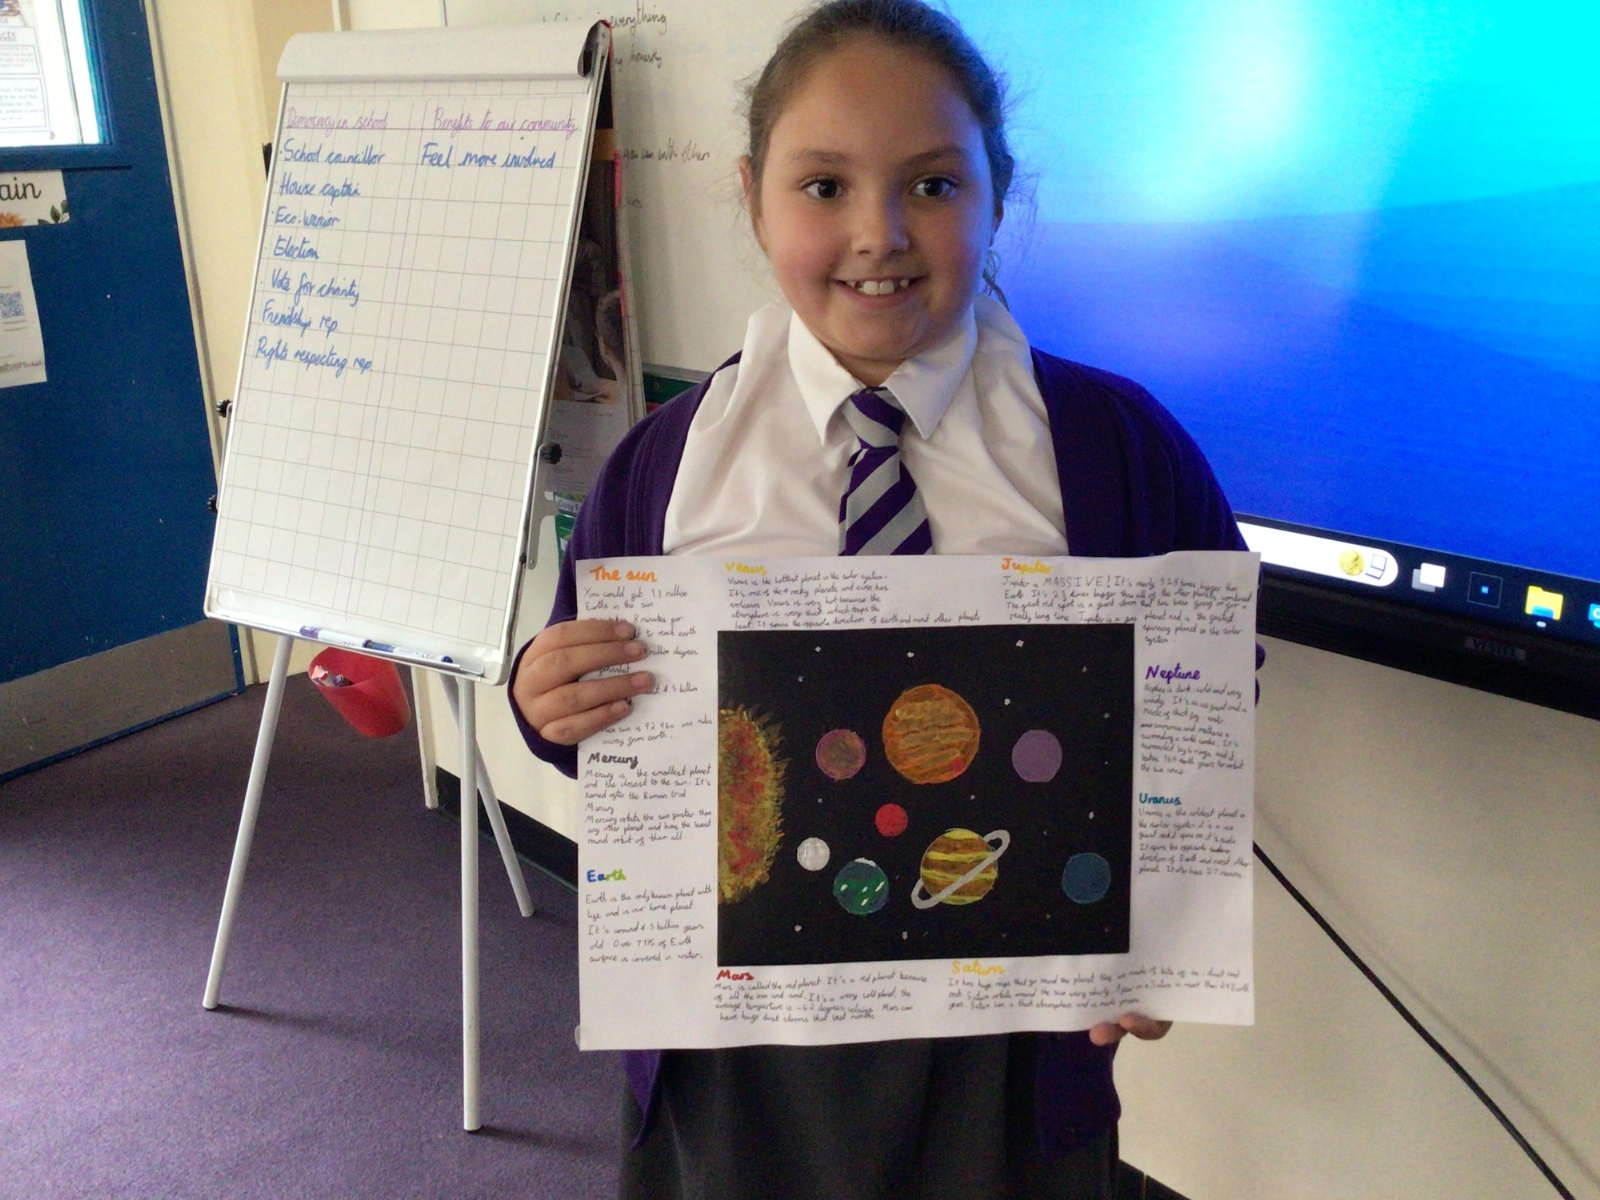 Democracy in school
Benefits to our community
· School councillor
Feel more involved
· House captain
· Eco-warrior
· Election
· Vote for charity
· Friendship rep
· Rights respecting rep.
everything
honesty
ain
The sun
You could get 1.3 million
Earths in the sun.
8 minutes for
to reach earth
million degrees
4.5 billion
miles
away from earth.
Mercury
Mercury is the smallest planet
and the closest to the sun. It's
named after the Roman God
Mercury
Mercury orbits the sun faster than
any other planet and has the least
round orbit of them all
Earth
Earth is the only known planet with
life and is our home planet.
It's around 4.5 billion years
old. Over 71% of Earth
surface is covered in water.
Venus
Venus is the hottest planet in the solar system.
It's one of the 4 rocky planets and even has
volcanos. Venus is very hot because the
atmosphere is very thick which traps the
heat. It spins the opposite direction of earth and most other planets
Jupiter
Jupiter is MASSIVE! It's nearly times bigger than
Earth. It's 2½ times bigger than all of the other planets combined
The great red spot is a giant storm that has been going on for a
really long time. Jupiter is a gas planet and is the fastest
spinning planet in the solar
system.
Neptune
Neptune is dark, cold and very
windy. It's an ice giant and is
made of thick fog, water
ammonia and methane
surrounding a solid
surrounded by 6 rings and it
takes 165 Earth years to orbit
the sun once.
Uranus
Uranus is the coldest planet in
the solar system it is a ice
giant and it spins on it's side.
It spins the opposite
direction of Earth and most other
planets. It also has 27 moons.
Mars
Mars is called the red planet. It's a red planet because
of all the iron and sand. It's a very cold planet, the
average temperture is -62 degrees celsius. Mars can
have huge dust storms that last months
Saturn
It has huge rings that go round the planet they are made of bits of ice, dust and
rock. Saturn orbits around the sun very slowly. A year on Saturn is more than 29 Earth
years. Saturn has a thick atmosphere and is made
VESTEL